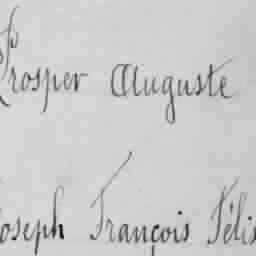 Prosper Auguste
Joseph François Félix